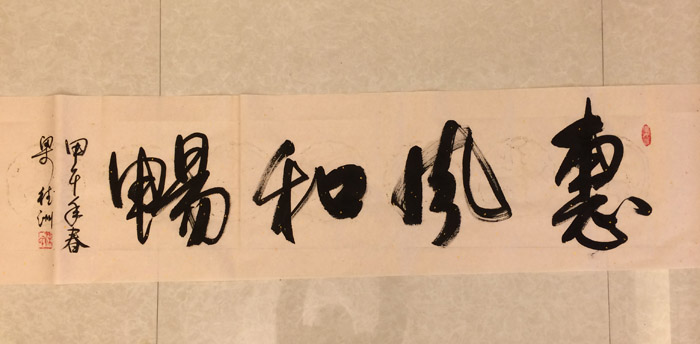 惠風和暢
甲午年春
梁桂洲